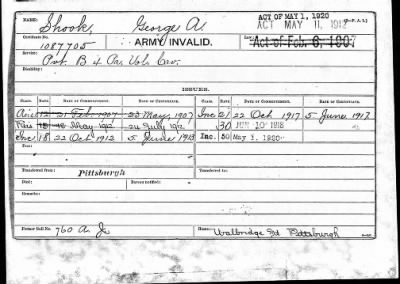 NAME: Shook, George A. ACT OF MAY 1, 1920
Certificate No. ACT MAY 11, 1912
1087705 ARMY INVALID. Law: Act of Feb. 6, 1907
Service: Pvt. B 4 Pa. Vols. Cav.
Disability:
ISSUES.
CLASS. RATE. DATE OF COMMENCEMENT. DATE OF CERTIFICATE. CLASS. RATE. DATE OF COMMENCEMENT. DATE OF CERTIFICATE.
12 21 Feb. 1907 23 May, 1907 Inc 21 22 Oct 1917 5 June 1917
Reis 15 18 May 1912 24 July 1912 30 JUN 10 1918
Inc 18 22 Oct 1912 5 June 1913 Inc. 50 May 1, 1920
Pittsburgh
Transferred from Transferred to
Died: Bureau notified:
Remarks:
Former Roll No. 760 A. J. Home: Walbridge St Pittsburgh